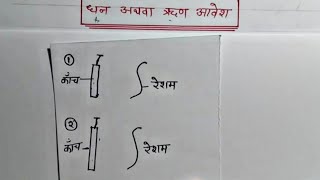 धन अथवा ऋण आवेश
①
काँच
रेशम
②
काँच
रेशम